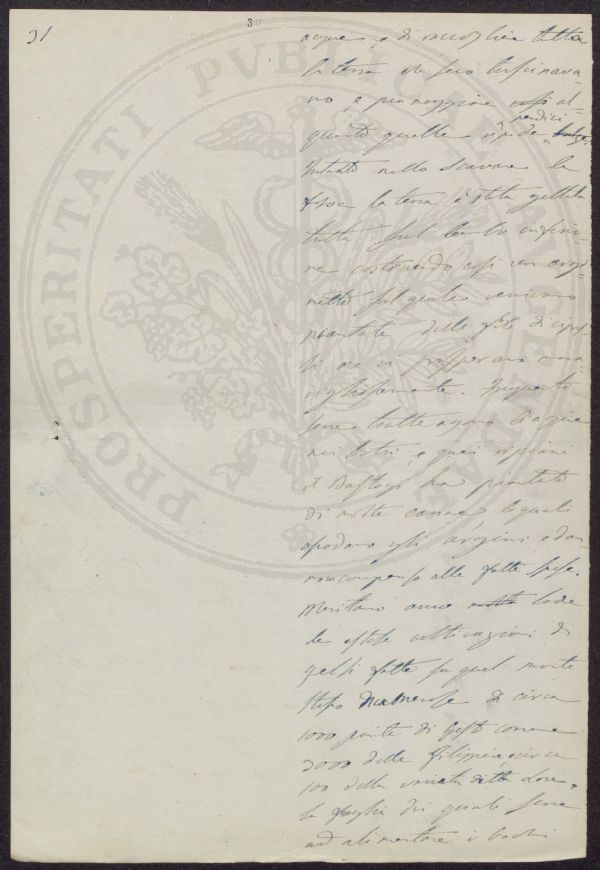 31
3
PROSPERITATI PVBLICAE AVGENDAE
acque, e di raccoglier tutta
la terra che seco trascinava-
no e più maggiore così al-
quanto quelle ripide
pendici
Intanto nello scavare le
fosse la terra è stata gettata
tutta sul lembo inferio-
re costruendo così un argi-
netto sul quale vennero
piantate delle file di cipres-
si che vi prosperano mera-
vigliosamente. Frequenti
serre trattengono le acque
nei botri, e quei ripiani
il Bastogi ha piantato
di molte canne le quali
assodano gli argini e dan-
no compenso alle fatte spese.
Meritano anco molta lode
le estese coltivazioni di
gelsi fatte su quel monte
stesso numerose di circa
1000 piante di Gelso comune
2000 delle Filippine, circa
100 della varietà detta
la foglia dei quali serve
ad alimentare i bachi